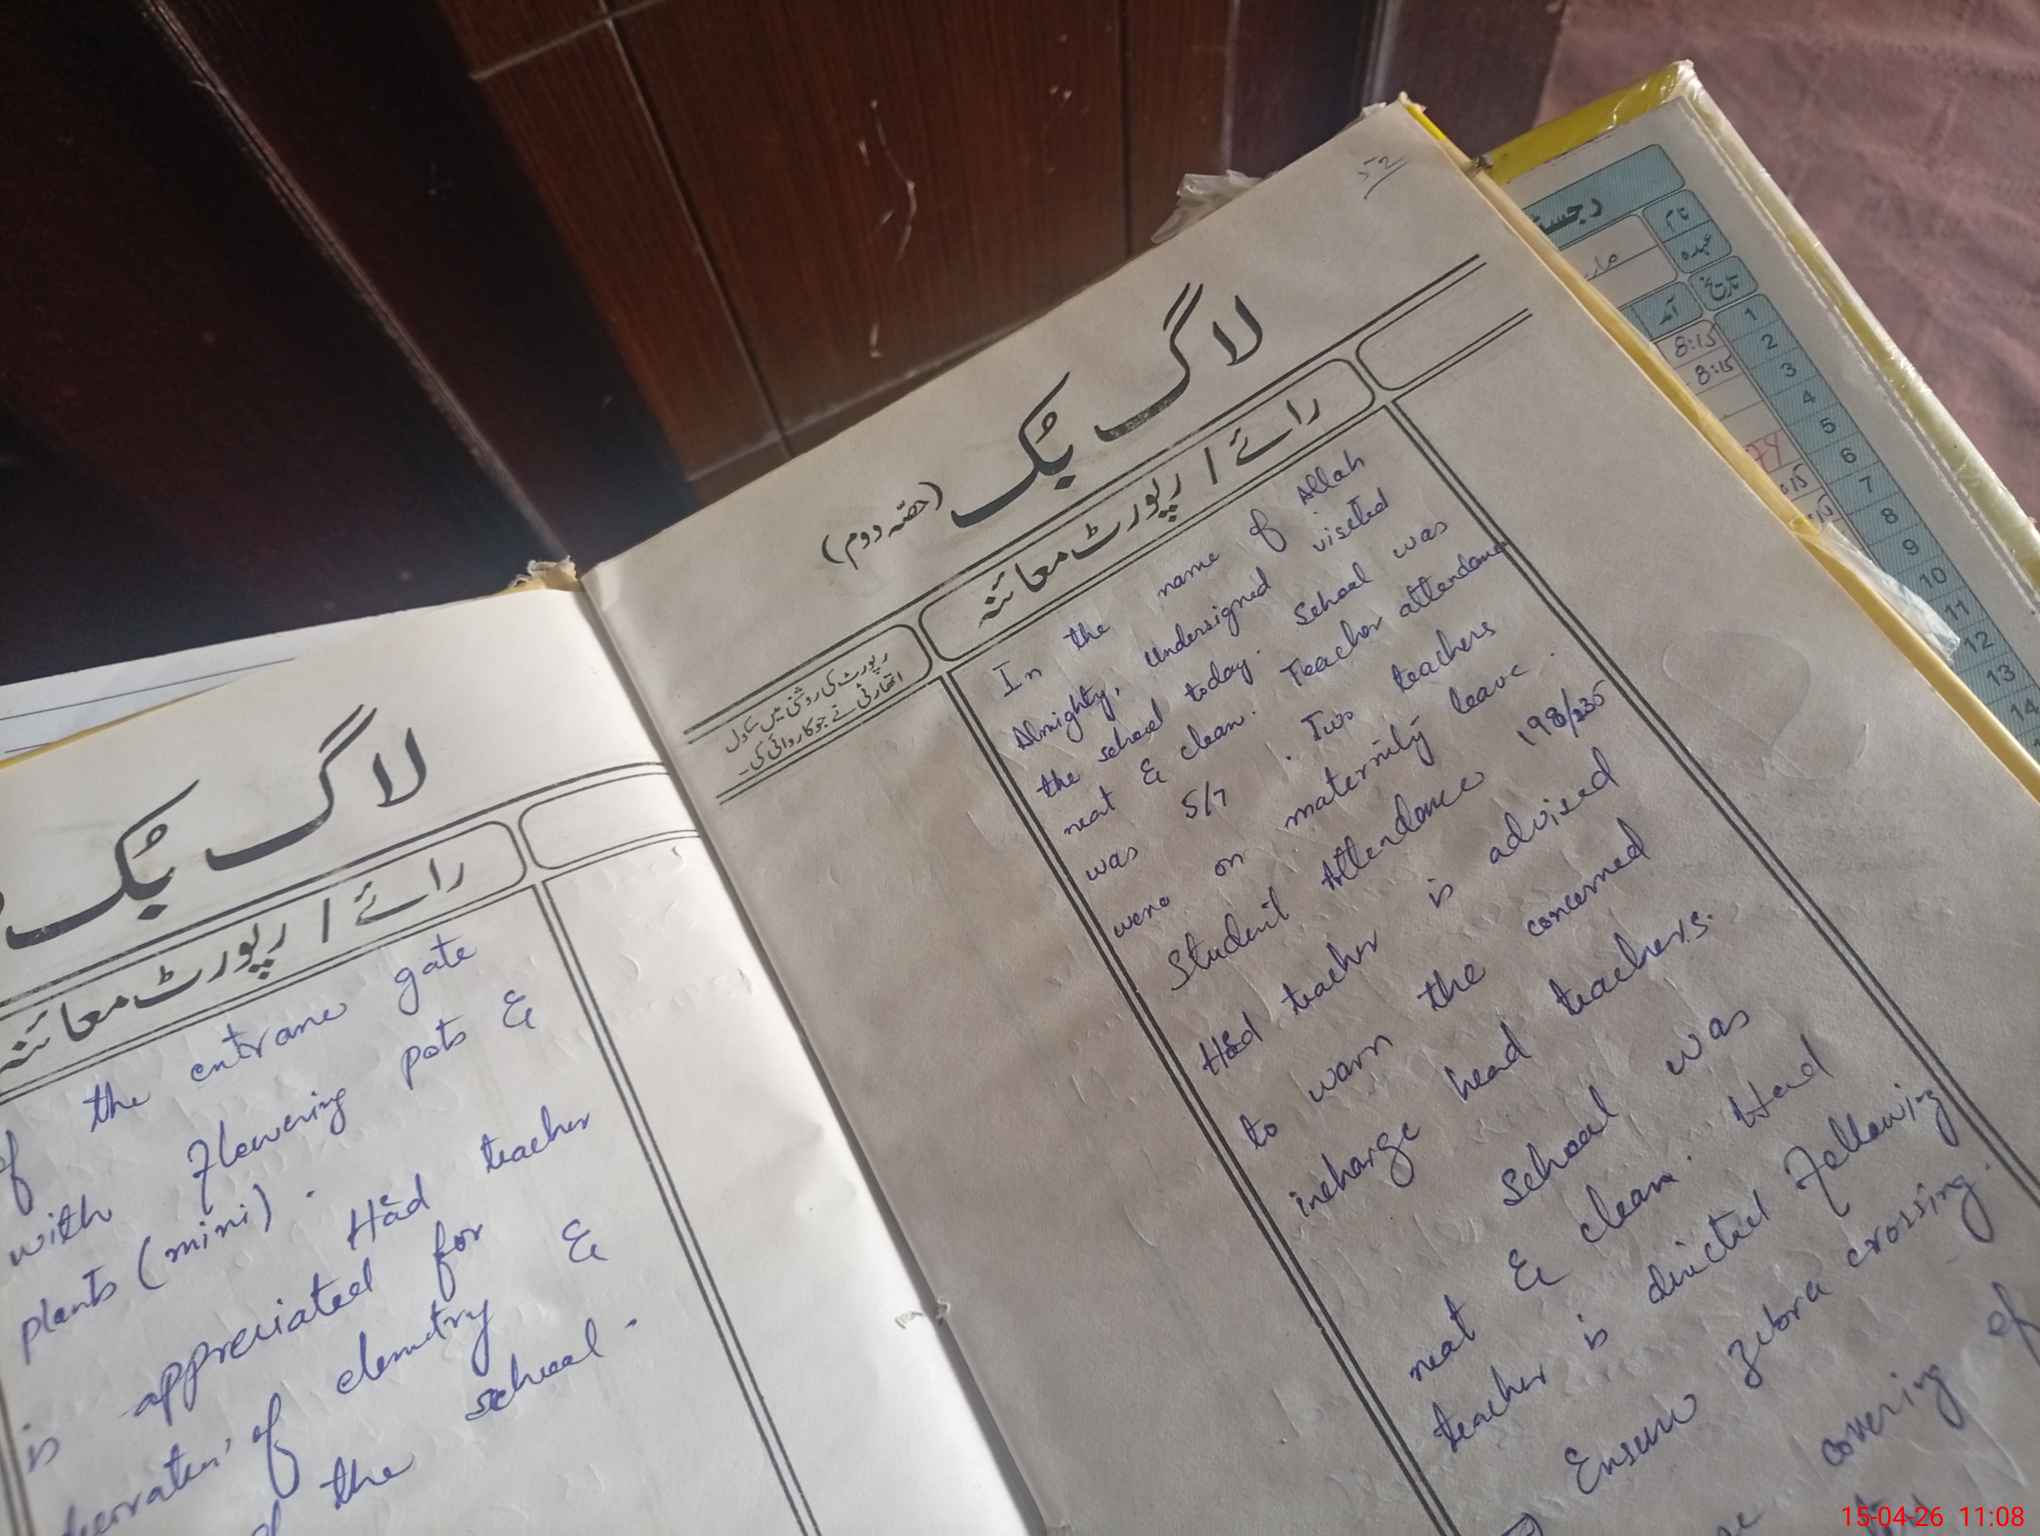 لاگ بُک
رائے / رپورٹ معائنہ
the entrane gate
with flowering pots &
plants (mini).
Head teacher
is appreciated for
of elemntry &
the school.
52
لاگ بُک (حصّہ دوم)
رائے / رپورٹ معائنہ
رپورٹ کی روشنی میں سکول
اتھارٹی نے جو کاروائی کی۔
In the name of Allah
Almighty, undersigned viseted
the school today. School was
neat & clean. Teacher attendance
was 5/7. Two teachers
were on maternity leave.
Student Attendance 198/235
Head teacher is advised
to warn the concerned
incharge head teachers.
School was
neat & clean. Head
teacher is directed following
Ensure zebra crossing.
covering of
رجسٹر
نام
عہدہ
تاریخ
آمد
1
8:15
2
8:15
3
4
5
6
7
8
9
10
11
12
13
14
15-04-26 11:08